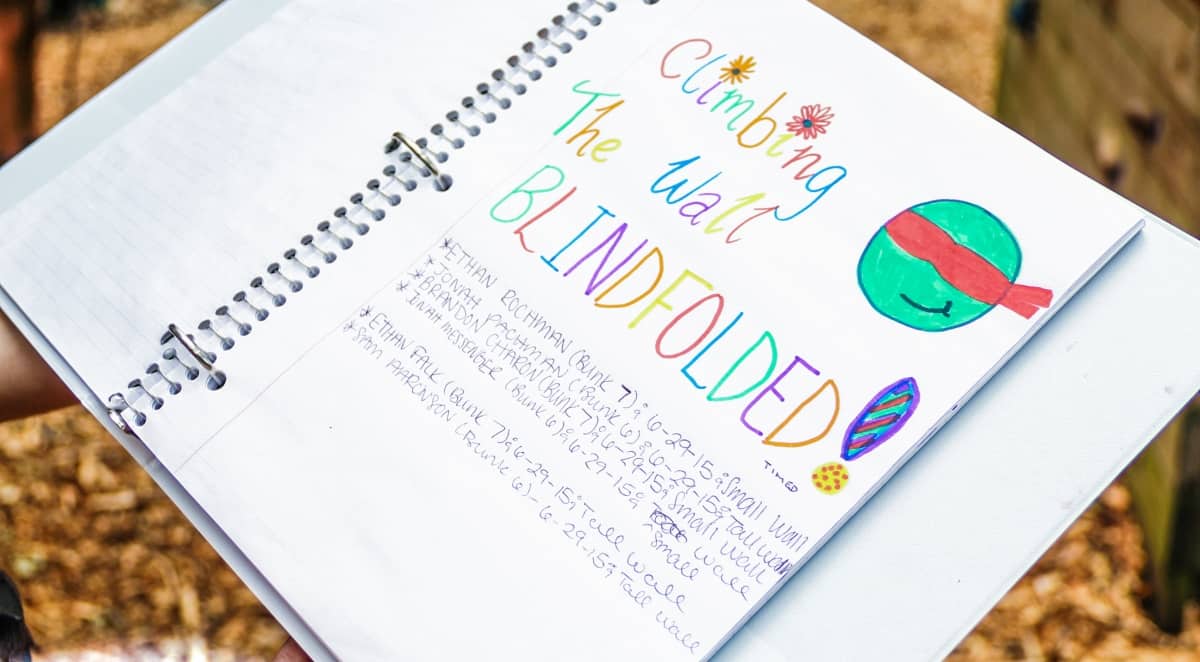 Climbing
The Wall
BLINDFOLDED!
TIMED
*ETHAN ROCHMAN (BUNK 7); 6-29-15; Small Wall
*JONAH PACHMAN (BUNK 6); 6-29-15; Tall Wall
*BRANDON CHARON (BUNK 7); 6-29-15; Small Wall
*JONAH MESSENGER (BUNK 6); 6-29-15; Small Wall
*ETHAN FALK (BUNK 7); 6-29-15; Tall Wall
*SAM AHARONSON (BUNK 6) - 6-29-15; Tall Wall